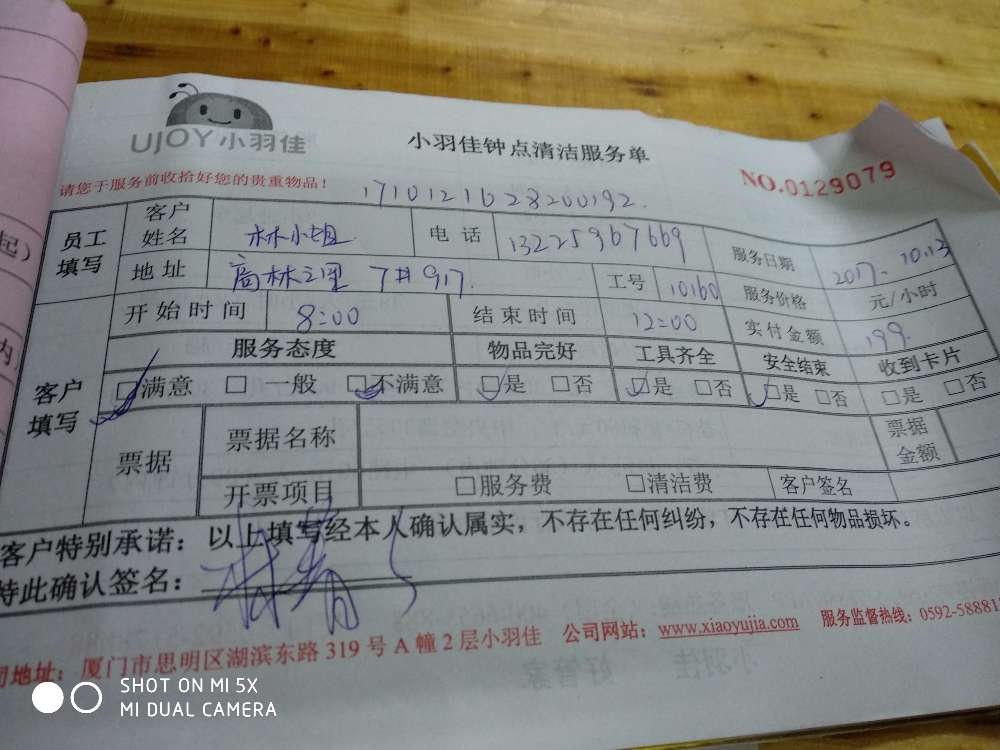 UJOY小羽佳
小羽佳钟点清洁服务单
NO.0129079
请您于服务前收拾好您的贵重物品！
1710121628200192.
员工填写 客户姓名 林小姐 电话 13225967669 服务日期 2017.10.13
地址 高林三里 7# 917. 工号 10160 服务价格 元/小时
客户填写 开始时间 8:00 结束时间 12:00 实付金额 199.
服务态度 物品完好 工具齐全 安全结束 收到卡片
□满意 □一般 □不满意 □是 □否 □是 □否 □是 □否 □是 □否
票据 票据名称 票据金额
开票项目 □服务费 □清洁费 客户签名
客户特别承诺：以上填写经本人确认属实，不存在任何纠纷，不存在任何物品损坏。
特此确认签名：
司地址：厦门市思明区湖滨东路 319 号 A 幢 2 层小羽佳 公司网站：www.xiaoyujia.com 服务监督热线：0592-58881
SHOT ON MI 5X
MI DUAL CAMERA